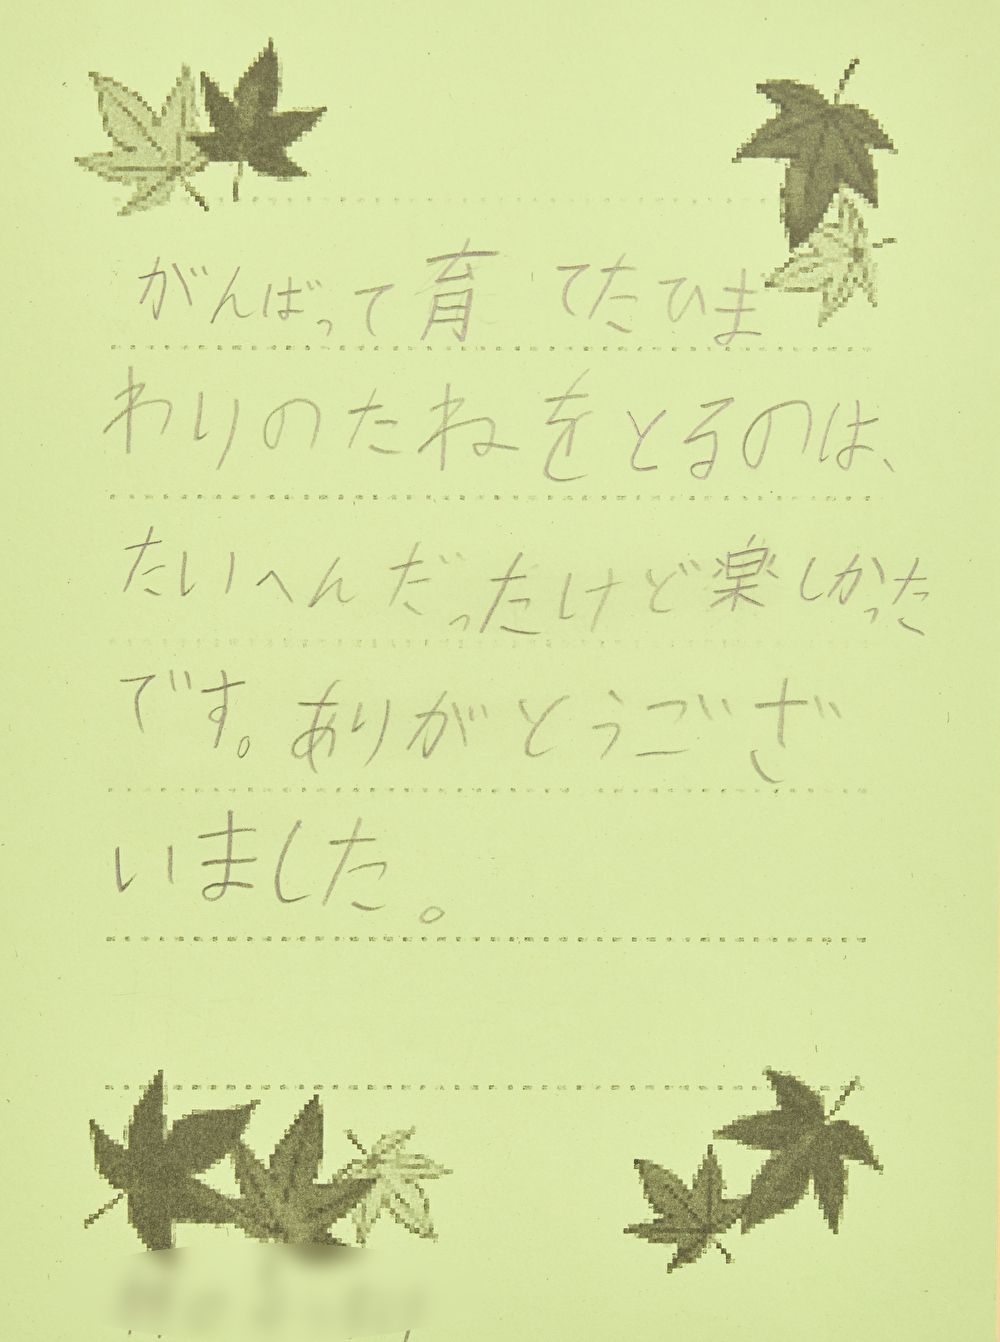 がんばって育てたひま
わりのたねをとるのは、
たいへんだったけど楽しかった
です。ありがとうござ
いました。